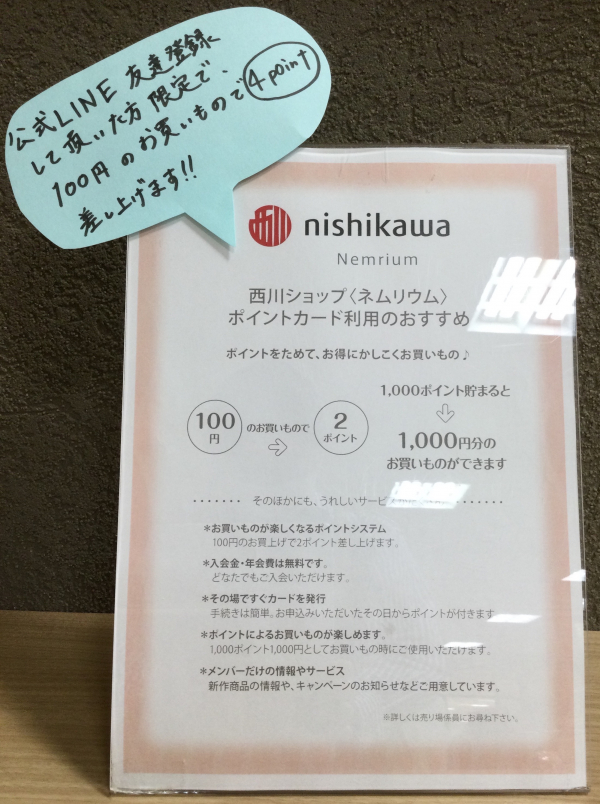 公式LINE 友達登録
して頂いた方限定で、
100円のお買いもので 4point
差し上げます!!
西川 nishikawa
Nemrium
西川ショップ〈ネムリウム〉
ポイントカード利用のおすすめ
ポイントをためて、お得にかしこくお買いもの♪
100円 のお買いもので ⇨ 2ポイント
1,000ポイント貯まると
⇩
1,000円分の
お買いものができます
······· そのほかにも、うれしいサービス ·······
＊お買いものが楽しくなるポイントシステム
100円のお買上げで2ポイント差し上げます。
＊入会金・年会費は無料です。
どなたでもご入会いただけます。
＊その場ですぐカードを発行
手続きは簡単。お申込みいただいたその日からポイントが付きます
＊ポイントによるお買いものが楽しめます。
1,000ポイント1,000円としてお買いもの時にご使用いただけます。
＊メンバーだけの情報やサービス
新作商品の情報や、キャンペーンのお知らせなどご用意しています。
※詳しくは売り場係員にお尋ね下さい。